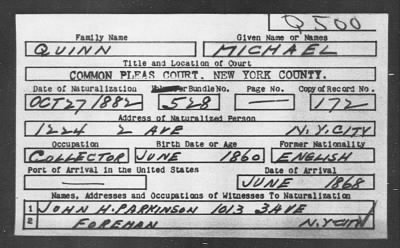 Q500
Family Name Given Name or Names
QUINN MICHAEL
Title and Location of Court
COMMON PLEAS COURT. NEW YORK COUNTY.
Date of Naturalization Volume or Bundle No. Page No. Copy of Record No.
OCT 27 1882 528 — 172
Address of Naturalized Person
1224 2 AVE N.Y. CITY
Occupation Birth Date or Age Former Nationality
COLLECTOR JUNE 1860 ENGLISH
Port of Arrival in the United States Date of Arrival
— JUNE 1868
Names, Addresses and Occupations of Witnesses To Naturalization
1 JOHN H. PARKINSON 1013 3 AVE
2 FOREMAN N.Y. CITY